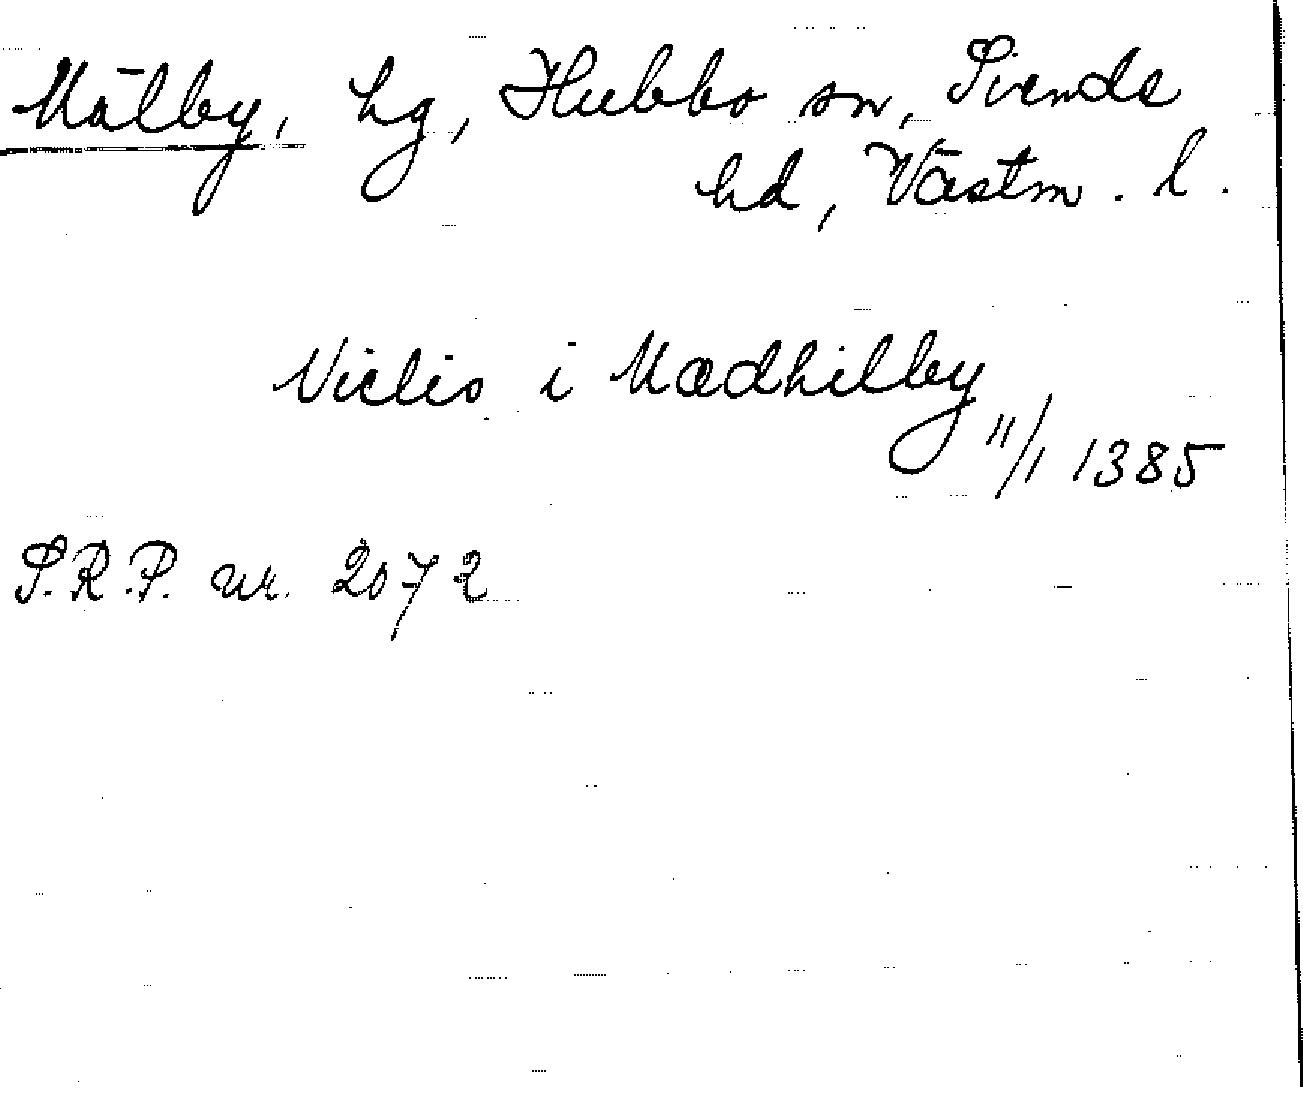 Mälby, hg, Hubbo sn, Siende
hd, Västm. l.
Niclis i Mædhilby
11/1 1385
S.R.P. nr. 2072